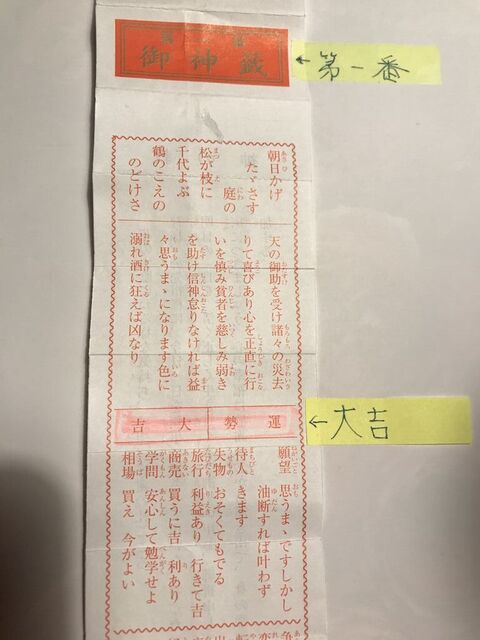 御神籤
第一番
朝日かげ
たゞさす
庭の
松が枝に
千代よぶ
鶴のこえの
のどけさ
天の御助を受け諸々の災去
りて喜びあり心を正直に行
いを慎み貧者を慈しみ弱き
を助け信神怠りなければ益
々思うまゝになります色に
溺れ酒に狂えば凶なり
運勢大吉
大吉
願望 思うまゝですしかし
油断すれば叶わず
待人 きます
失物 おそくてもでる
旅行 利益あり 行きて吉
商売 買うに吉 利あり
学問 安心して勉学せよ
相場 買え 今がよい